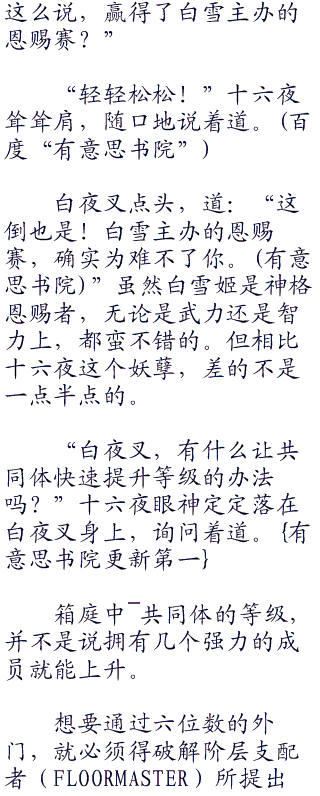 这么说，赢得了白雪主办的
恩赐赛？”
“轻轻松松！”十六夜
耸耸肩，随口地说着道。(百
度“有意思书院”)
白夜叉点头，道：“这
倒也是！白雪主办的恩赐
赛，确实为难不了你。(有意
思书院)”虽然白雪姬是神格
恩赐者，无论是武力还是智
力上，都蛮不错的。但相比
十六夜这个妖孽，差的不是
一点半点的。
“白夜叉，有什么让共
同体快速提升等级的办法
吗？”十六夜眼神定定落在
白夜叉身上，询问着道。{有
意思书院更新第一}
箱庭中¯共同体的等级，
并不是说拥有几个强力的成
员就能上升。
想要通过六位数的外
门，就必须得破解阶层支配
者（FLOORMASTER）所提出